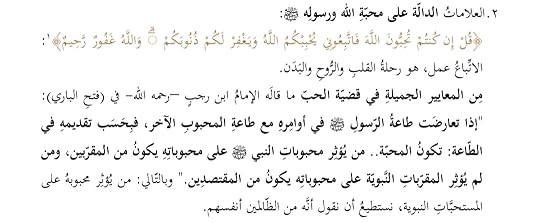 ٢. العلاماتُ الدالّة على محبّةِ الله ورسولِه ﷺ:
﴿قُلْ إِن كُنتُمْ تُحِبُّونَ اللَّهَ فَاتَّبِعُونِي يُحْبِبْكُمُ اللَّهُ وَيَغْفِرْ لَكُمْ ذُنُوبَكُمْ ۗ وَاللَّهُ غَفُورٌ رَّحِيمٌ﴾١:
الاتّباعُ عمل، هو رحلةُ القلبِ والرُّوحِ والبَدَن.
مِن المعايير الجميلةِ في قضيّة الحبّ ما قالَه الإمامُ ابن رجبٍ –رحمه الله- في (فتح الباري):
"إذا تعارضَت طاعةُ الرّسولِ ﷺ في أوامِرِه مع طاعةِ المحبوبِ الآخر، فبِحَسب تقديمِه في
الطّاعة: تكونُ المحبّة.. من يُؤثِر محبوباتِ النبي ﷺ على محبوباتِه يكونُ من المقرّبين، ومن
لم يُؤثِر المقرّباتِ النَّبويّة على محبوباتِه يكونُ من المقتصدِين." وبالتّالي: من يُؤثِر محبوبهُ على
المستحبّاتِ النبوية، نستطيعُ أن نقول أنَّه من الظّالمين أنفسهم.